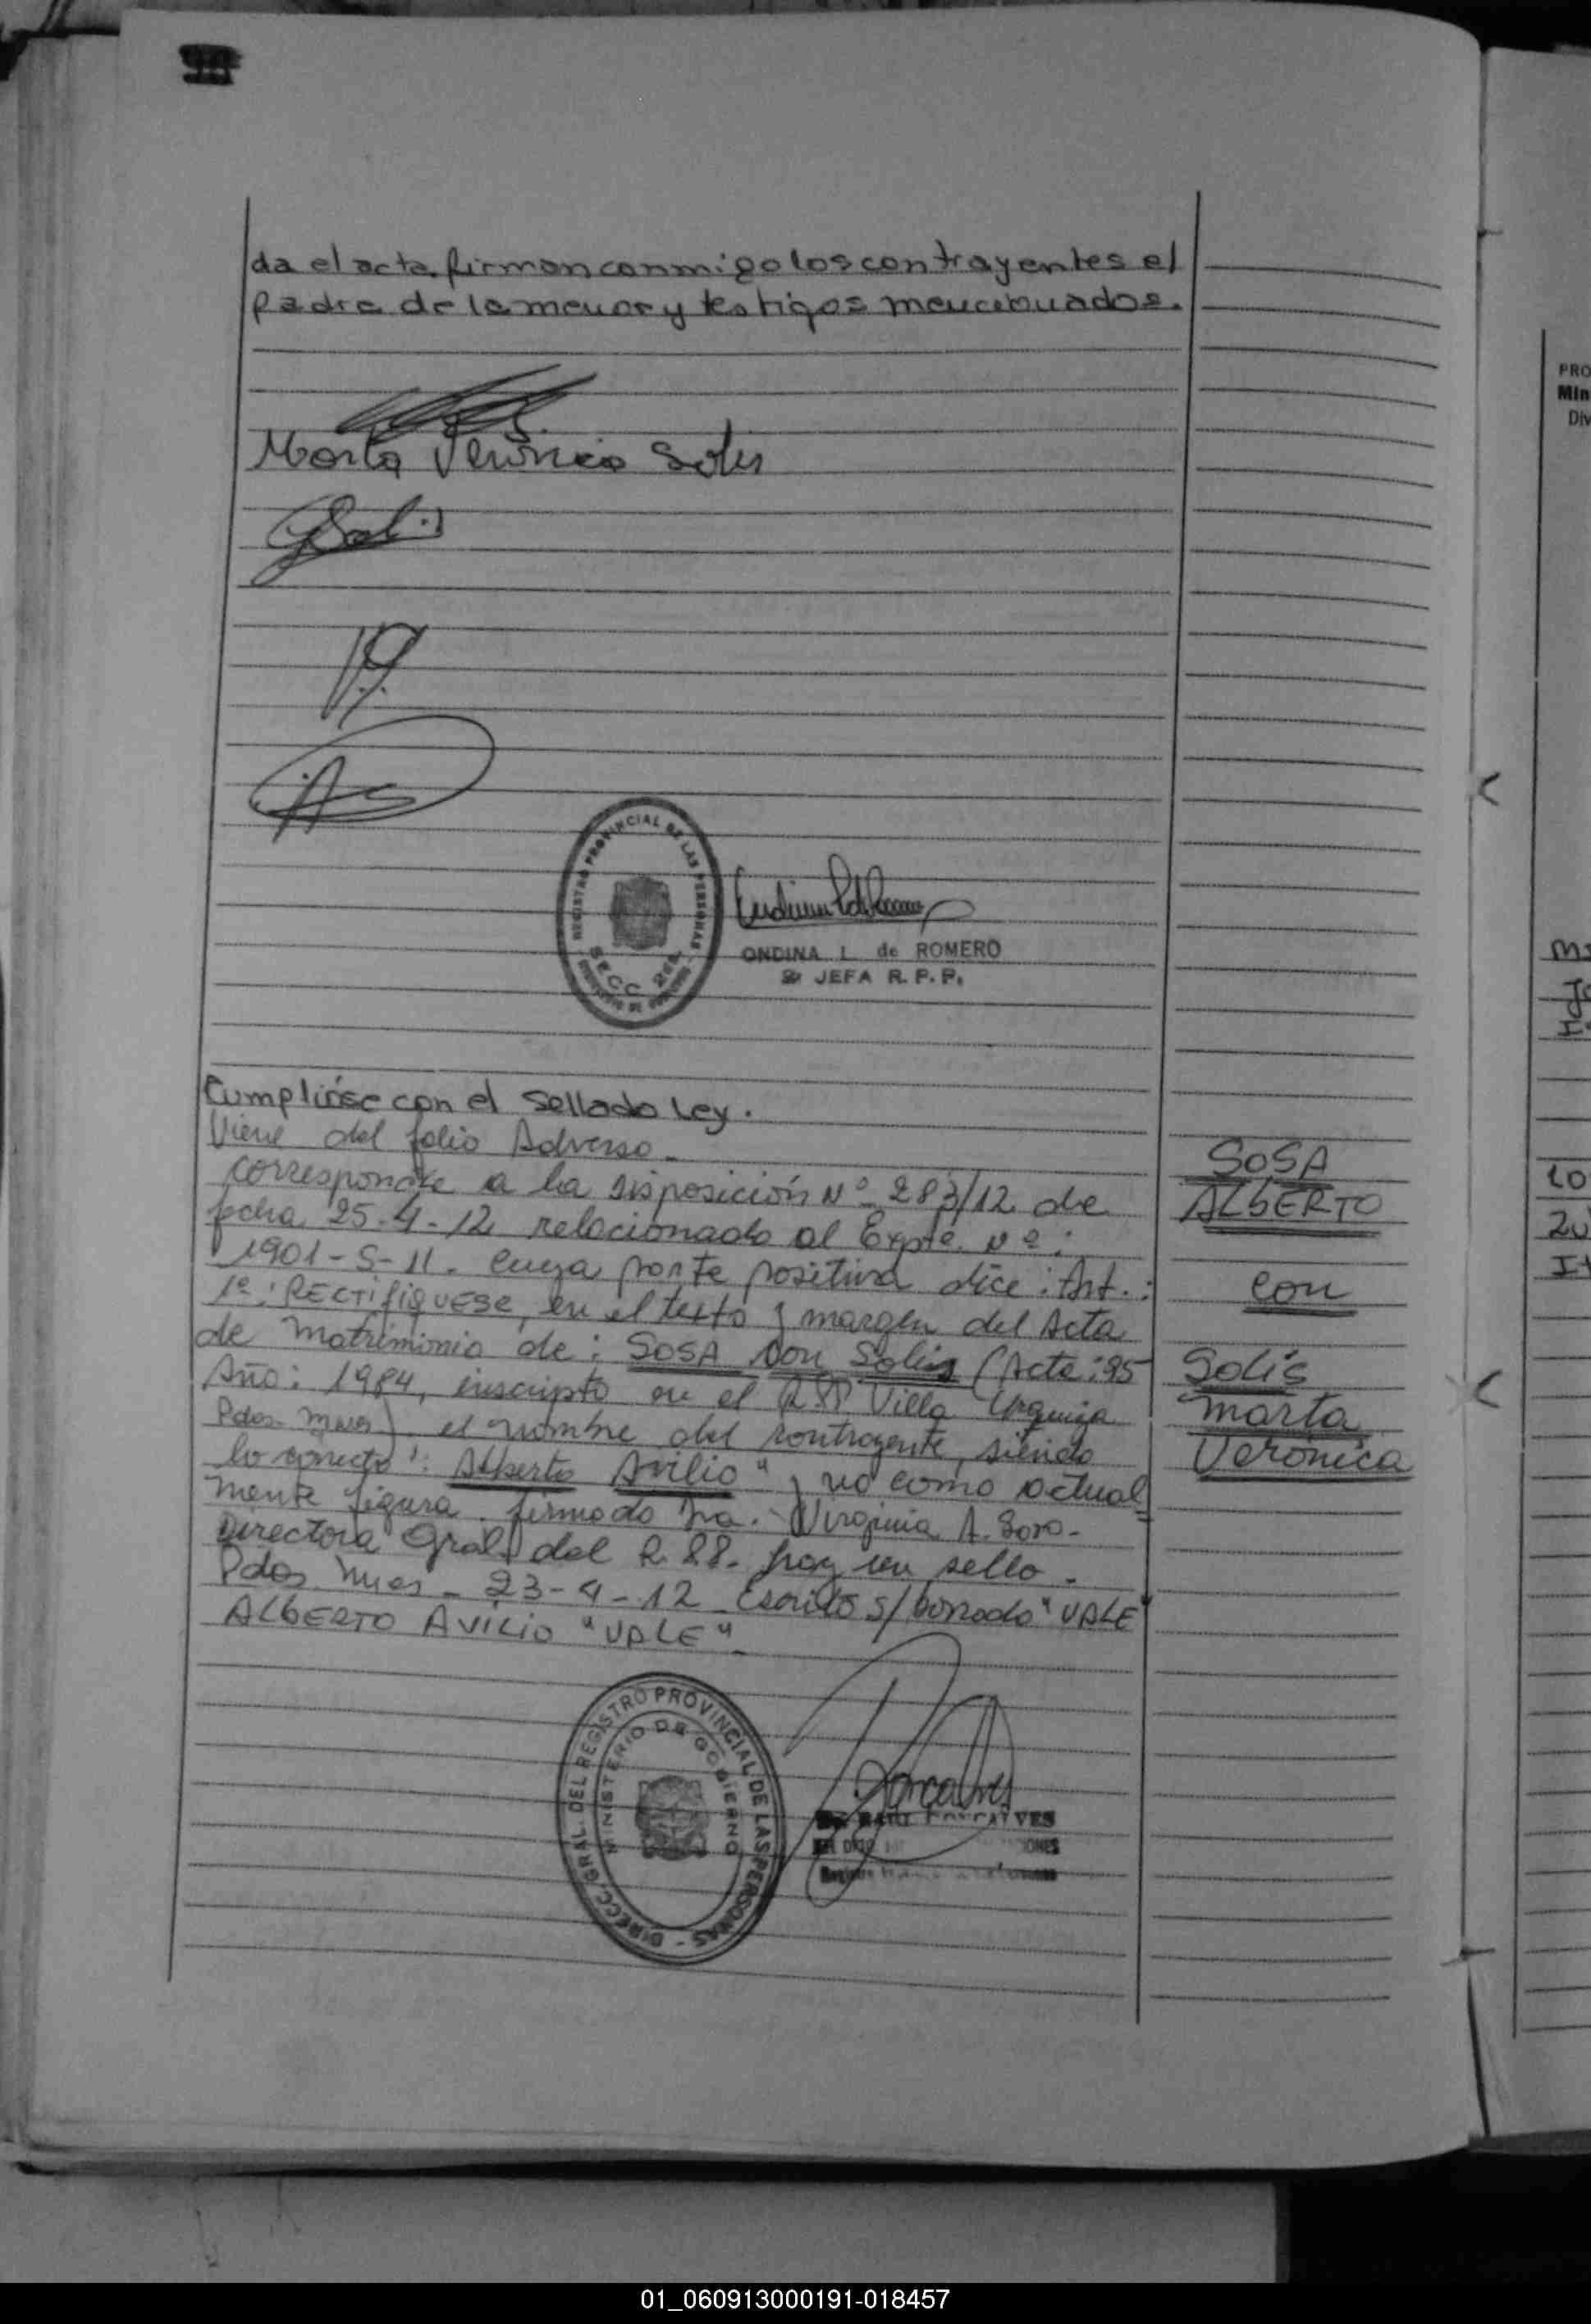 da el acta. firman conmigo los contrayentes el
padre de la menor y testigos mencionados.
Marta Verónica Solis
GSolis
REGISTRO PROVINCIAL DE LAS PERSONAS
SECC.
ONDINA L de ROMERO
JEFA R. P. P.
Cumplióse con el Sellado Ley.
Viene del folio Adverso.-
corresponde a la disposición Nº 283/12 de
fecha 25-4-12 relacionado al Expte. Nº:
1901-S-11. cuya parte positiva dice: Art.:
1º: RECTIFIQUESE, en el texto y margen del Acta
de Matrimonio de: SOSA con Solis (Acta: 95
Año: 1984, inscripto en el RPP Villa Urquiza
Pdas- Mnes) el nombre del contrayente, siendo
lo correcto: "Alberto Avilio" y no como actual=
mente figura. firmado Dra. Virginia A.
Directora Gral. del R. PP. hay un sello.
Pdas Mnes - 23-4-12 Escrito s/ borrado "VALE"
ALBERTO AVILIO "VALE"
SOSA
ALBERTO
con
Solís
Marta
Verónica
DIRECC. GRAL. DEL REGISTRO PROVINCIAL DE LAS PERSONAS
MINISTERIO DE GOBIERNO
PRO
Min
Div
10
01_060913000191-018457